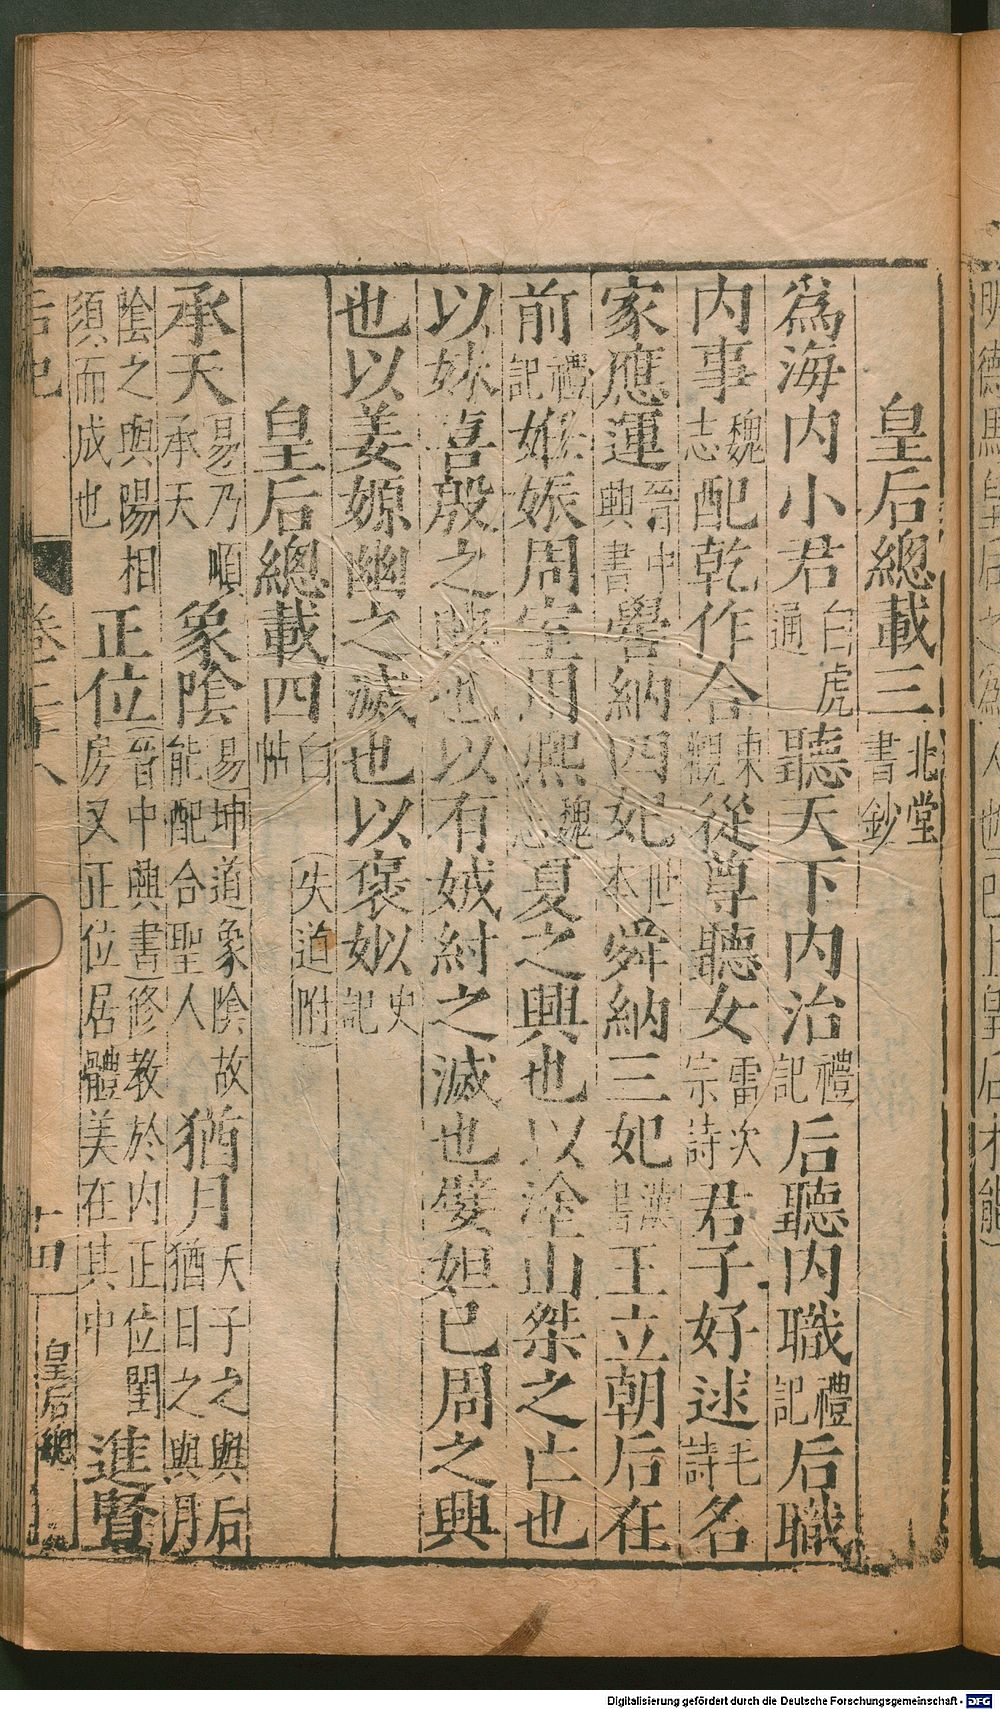 皇后總載三北堂書鈔
爲海内小君白虎通聽天下内治禮記后聽内職禮記后職
内事魏志配乾作合東觀從尊聽女雷次宗詩君子好逑毛詩名
家應運晉中興書嚳納四妃世本舜納三妃漢書王立朝后在
前禮記娰娠周室用熙魏志夏之興也以塗山桀之亡也
以妺喜殷之興也以有娀紂之滅也嬖妲已周之興
也以姜嫄幽之滅也以褒姒以史記
皇后總載四白帖失道附
承天易乃順承天象陰易坤道象陰故能配合聖人猶月天子之與后猶日之與月
陰之與陽相須而成也正位晉中興書修敎於内正位閨房又正位居體美在其中進賢
后妃 卷二十八 十四 皇后總
明德馬皇后之爲人也已上皇后才能
Digitalisierung gefördert durch die Deutsche Forschungsgemeinschaft - DFG